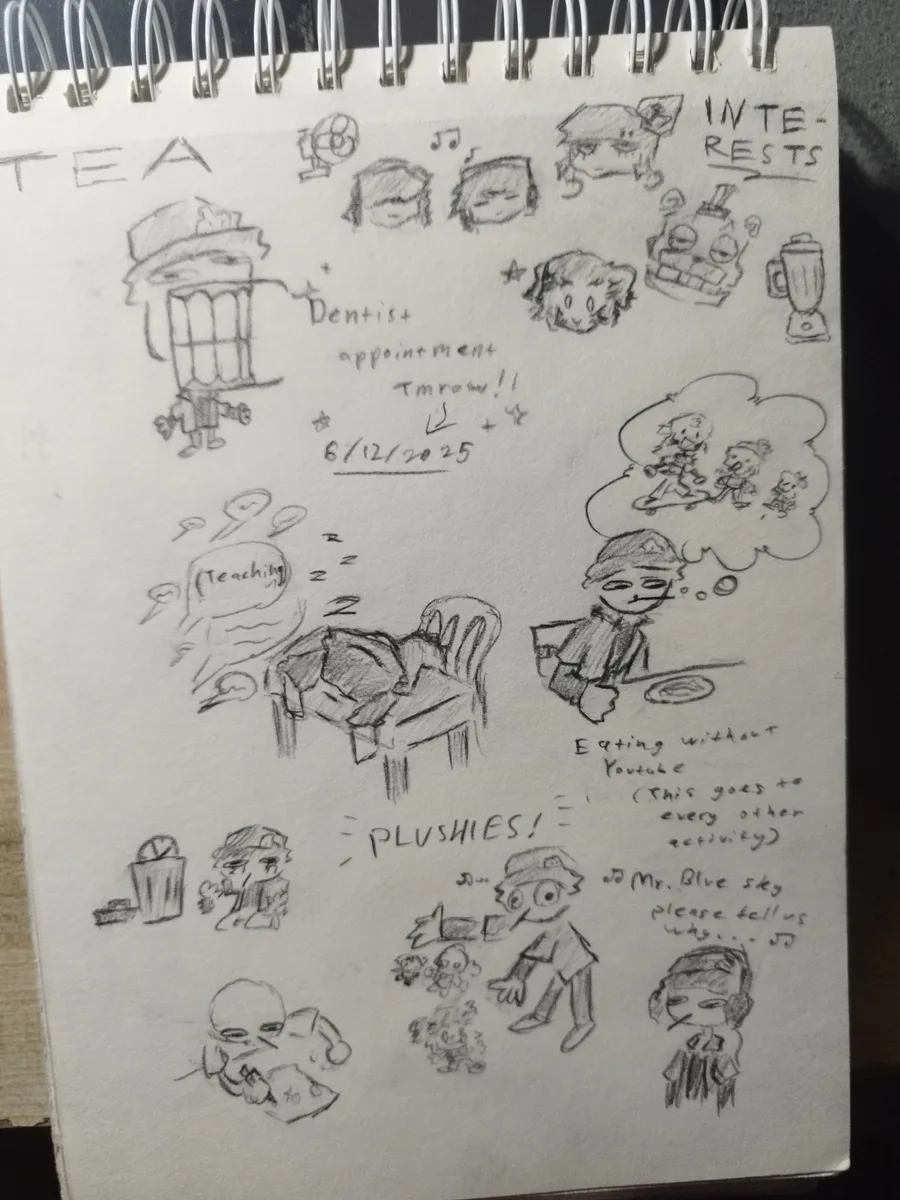 TEA
INTE-
RESTS
Dentist
appointment
tmrow!!
6/12/2025
(Teaching)
z z z z
Eating without
Youtube
(This goes to
every other
activity)
PLUSHIES!
Mr. Blue sky
please tell us
why...